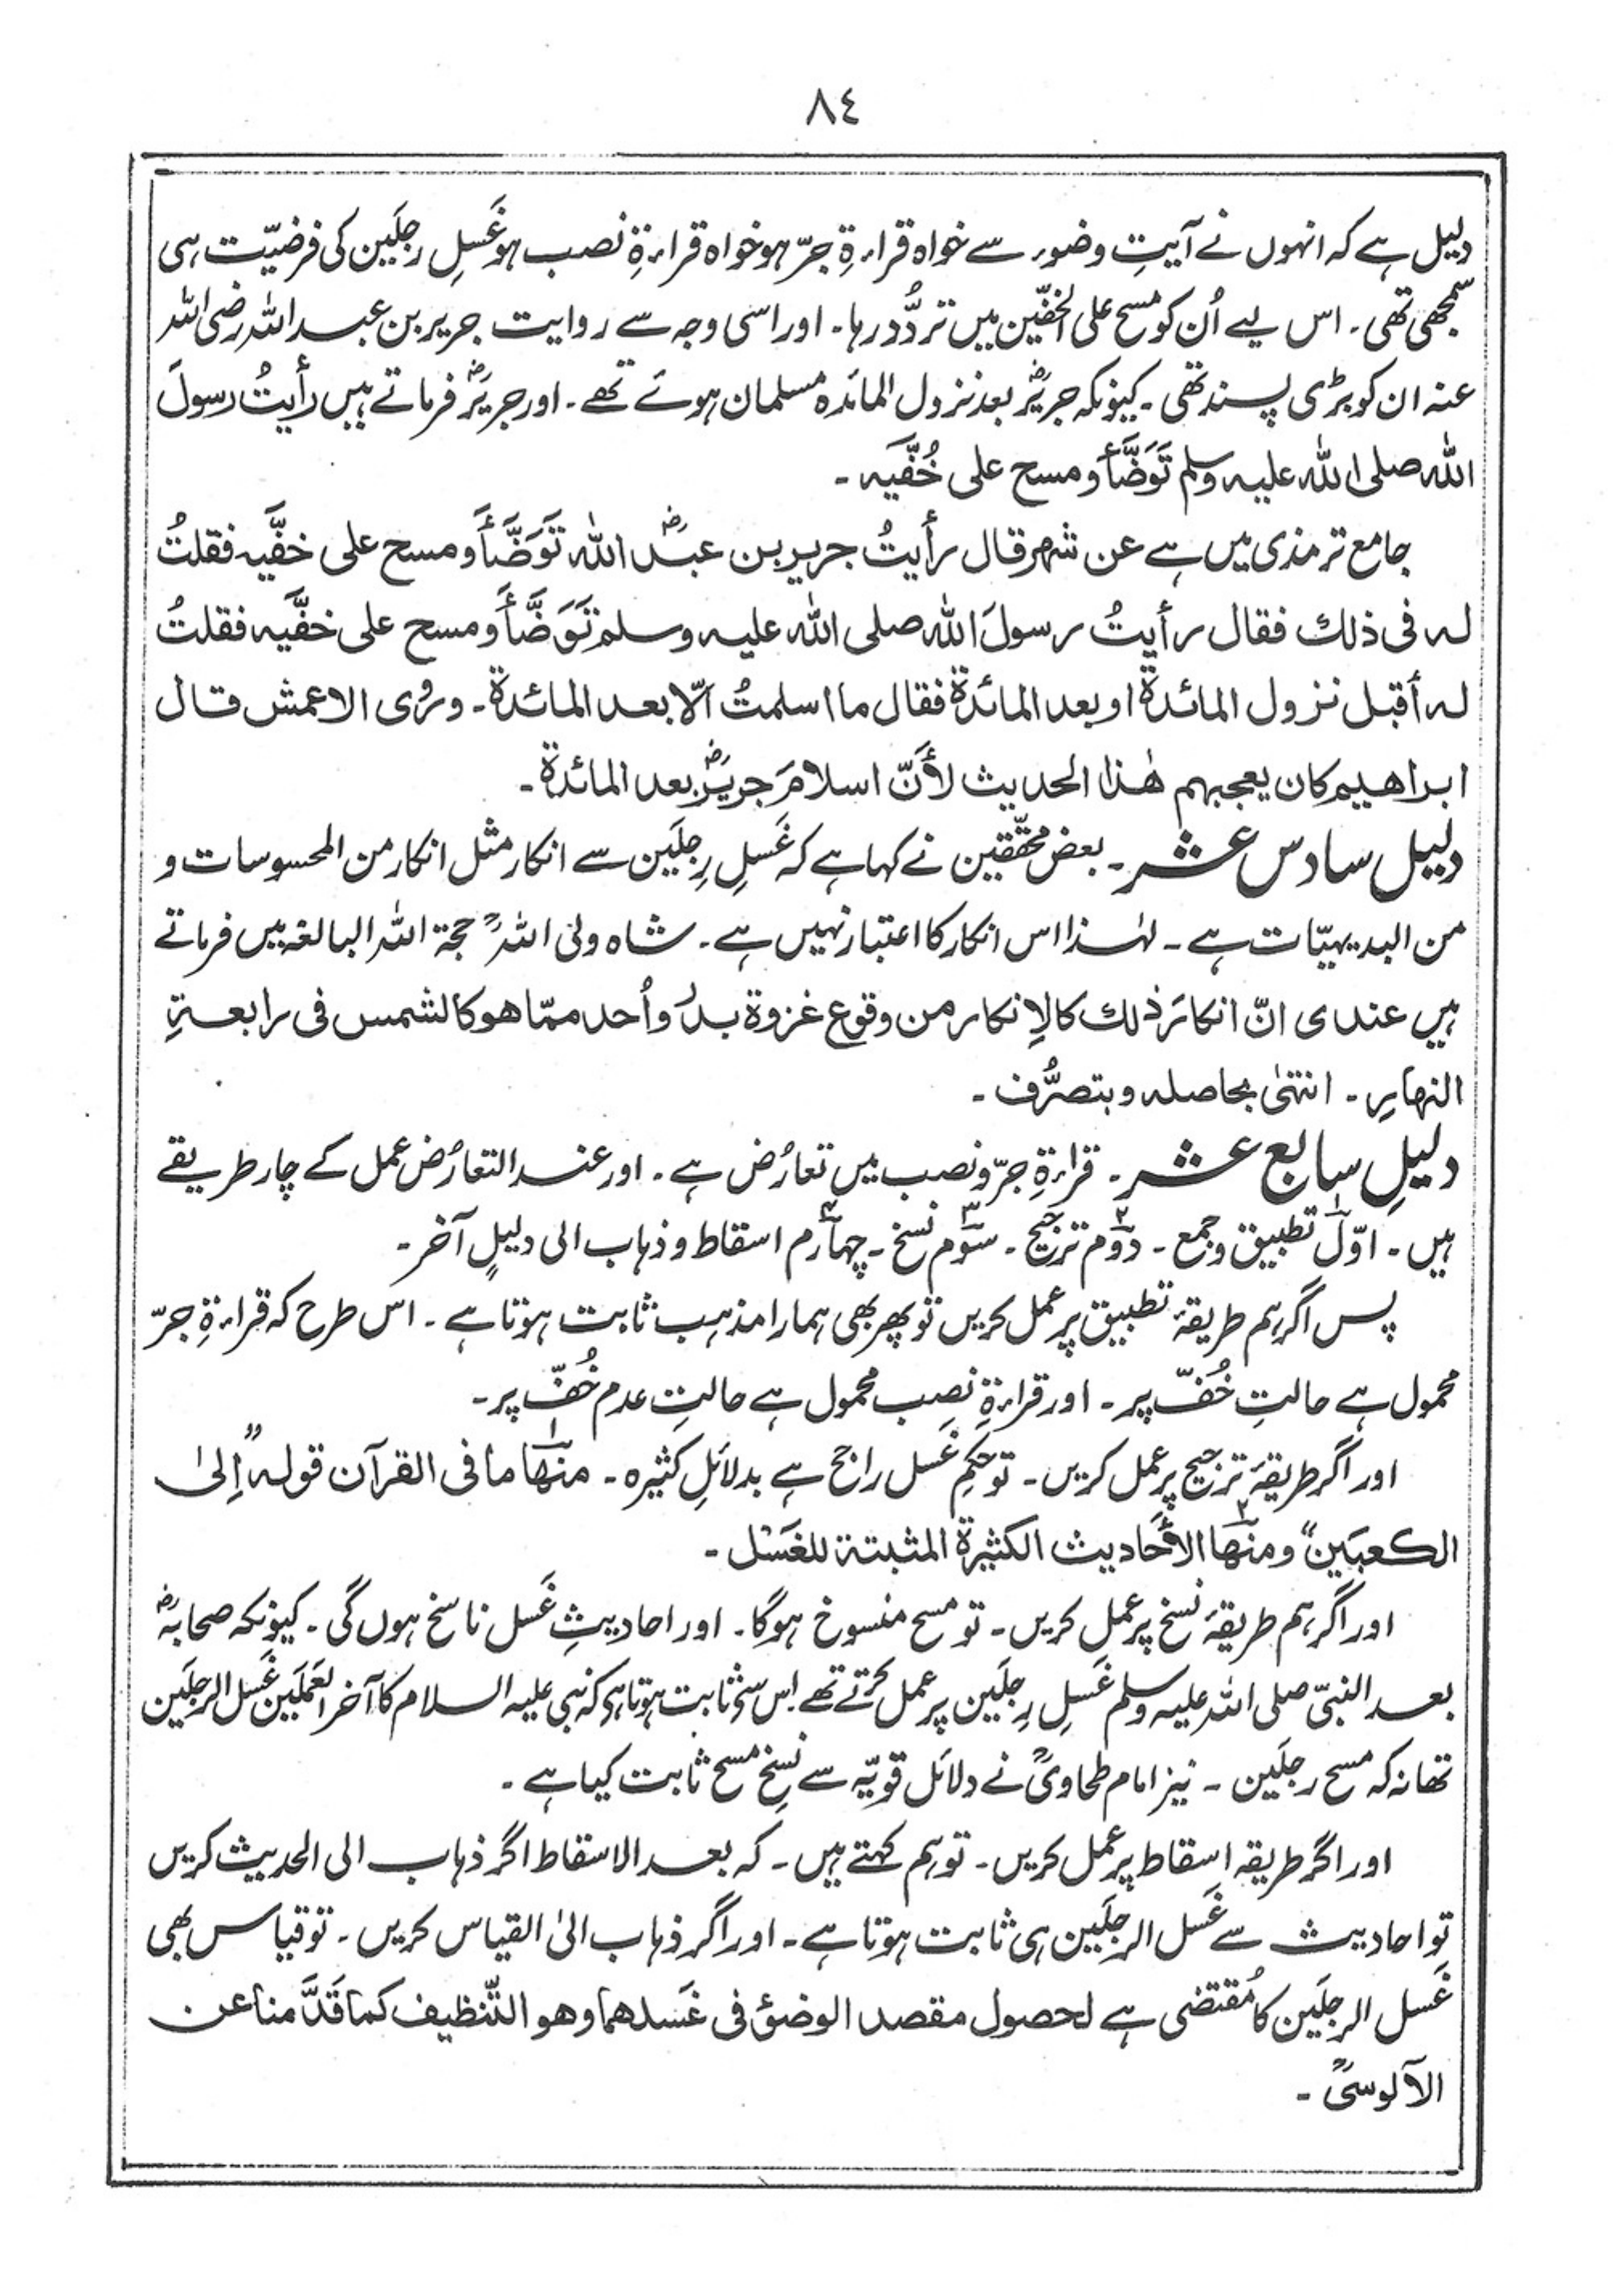 ٨٤
دلیل ہے کہ انہوں نے آیتِ وضور سے خواہ قراءۃِ جرّ ہو خواہ قراءۃِ نصب ہو غَسلِ رِجلَین کی فرضیّت ہی
سمجھی تھی۔ اس لیے اُن کو مسح علی الخفّین میں تردُّد رہا۔ اور اسی وجہ سے روایت جریر بن عبد اللہ رضی اللہ
عنہ ان کو بڑی پسند تھی۔ کیونکہ جریرؓ بعد نزول المائدہ مسلمان ہوئے تھے۔ اور جریرؓ فرماتے ہیں رأیتُ رسولَ
اللہ صلی اللہ علیہ وسلم تَوَضَّأَ و مسح علی خُفَّیہ۔
جامع ترمذی میں ہے عن شہر قال رأیتُ جریر بن عبدؓ اللہ تَوَضَّأَ و مسح علی خفَّیہ فقلتُ
لہ فی ذلك فقال رأیتُ رسولَ اللہ صلی اللہ علیہ وسلم تَوَضَّأَ و مسح علی خفَّیہ فقلتُ
لہ أقبل نزول المائدۃ او بعد المائدۃ فقال ما اسلمتُ الّا بعد المائدۃ۔ ورُوی الاعمش قال
ابراھیم کان یعجبہم ھٰذا الحدیث لأَنّ اسلامَ جریرؓ بعد المائدۃ۔
دلیل سادس عشر۔ بعض محقّقین نے کہا ہے کہ غَسلِ رِجلَین سے انکار مثل انکار من المحسوسات و
من البدیہیّات ہے۔ لہٰذا اس انکار کا اعتبار نہیں ہے۔ شاہ ولی اللہؒ حجۃ اللہ البالغہ میں فرماتے
ہیں عندی انّ انکارَ ذلك کالاِنکار من وقوع غزوۃ بدر و اُحد ممّا ھو کالشمس فی رابعۃِ
النھارِ۔ انتہٰی بحاصلہ و بتصرُّف۔
دلیلِ سابع عشر۔ قراءۃِ جرّ و نصب میں تعارُض ہے۔ اور عند التعارُض عمل کے چار طریقے
ہیں۔ اوّل۱ تطبیق و جمع۔ دوّم۲ ترجیح۔ سوّم۳ نسخ۔ چہارم۴ اسقاط و ذہاب الی دلیلٍ آخر۔
پس اگر ہم طریقۂ تطبیق پر عمل کریں تو پھر بھی ہمارا مذہب ثابت ہوتا ہے۔ اس طرح کہ قراءۃِ جرّ
محمول ہے حالتِ خُفّ پر۔ اور قراءۃِ نصب محمول ہے حالتِ عدم خُفّ پر۔
اور اگر طریقۂ ترجیح پر عمل کریں۔ تو حکمِ غَسل راجح ہے بدلائلِ کثیرہ۔ منھا۱ ما فی القرآن قولہ "اِلیٰ
الکعبَین" و منھا۲ الأحادیث الکثیرۃ المثبتۃ للغَسْل۔
اور اگر ہم طریقۂ نسخ پر عمل کریں۔ تو مسح منسوخ ہوگا۔ اور احادیثِ غَسل ناسخ ہوں گی۔ کیونکہ صحابہؓ
بعد النبیّ صلی اللہ علیہ وسلم غَسلِ رِجلَین پر عمل کرتے تھے اس سے ثابت ہوتا ہے کہ نبی علیہ السلام کا آخر العَمَلَین غَسل الرجلَین
تھا نہ کہ مسح رجلَین۔ نیز امام طحاویؒ نے دلائل قویّہ سے نسخِ مسح ثابت کیا ہے۔
اور اگر طریقہ اسقاط پر عمل کریں۔ تو ہم کہتے ہیں۔ کہ بعد الاسقاط اگر ذہاب الی الحدیث کریں
تو احادیث سے غَسل الرجلَین ہی ثابت ہوتا ہے۔ اور اگر ذہاب الیٰ القیاس کریں۔ تو قیاس بھی
غَسل الرجلَین کا مُقتضی ہے لحصول مقصد الوضوٴ فی غَسلھما وھو التّنظیف کما قَدَّمنا عن
الآلوسیؒ۔